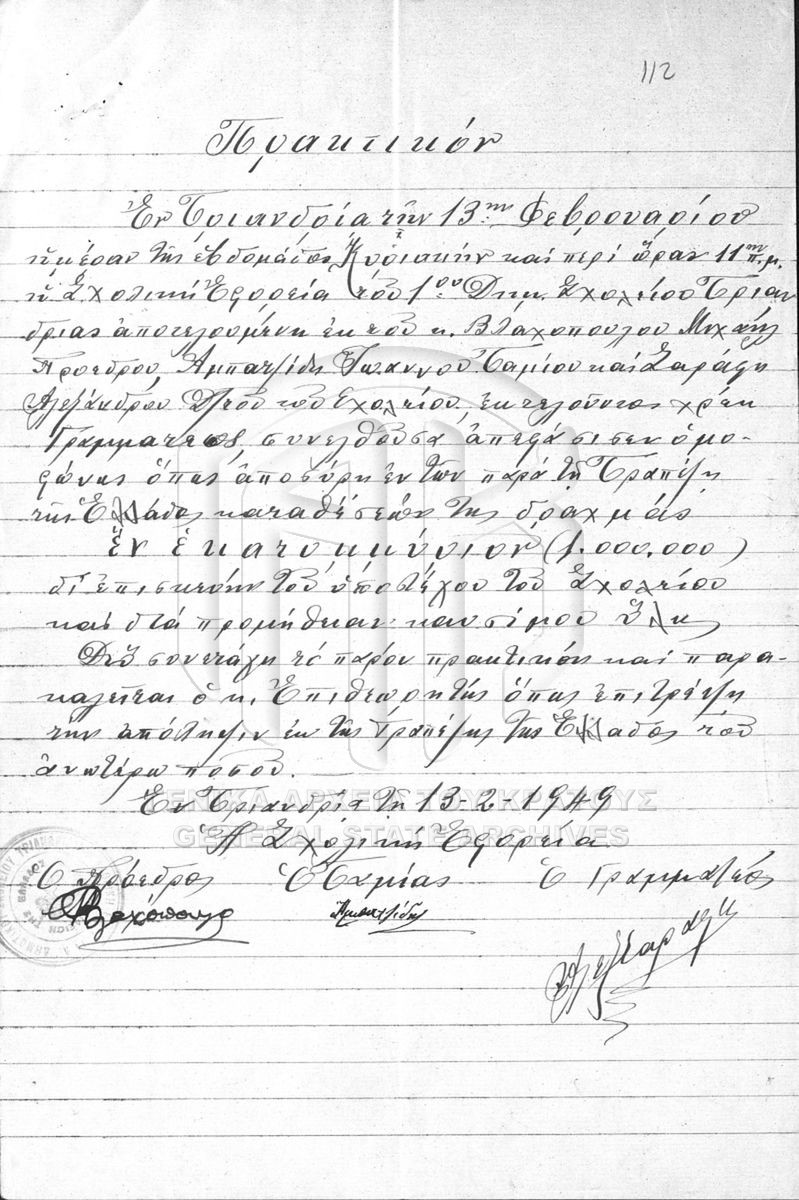 112
Πρακτικόν
Ἐν Τριανδρίᾳ τῇν 13ην Φεβρουαρίου
ἡμέραν τῆς ἑβδομάδος Κυριακήν καί περί ὥραν 11ην π.μ.
ἡ Σχολική Ἐφορεία τοῦ 1ου Δημ. Σχολείου Τριαν
δρίας ἀποτελουμένη ἐκ τοῦ κ. Βλαχοπούλου Μιχαήλ
Προέδρου, Αμπατζίδη Ἰωάννου Ταμίου καί Σαράφη
Ἀλεξάνδρου Δ/τοῦ τοῦ Σχολείου, ἐκτελοῦντος χρέη
Γραμματέως, συνελθοῦσα ἀπεφάσισεν ὁμο-
φώνως ὅπως ἀποσύρῃ ἐκ τῶν παρά τῇ Τραπέζῃ
τῆς Ἑλλάδος καταθέσεών της δραχμάς
ἕν ἑκατομμύριον (1.000.000)
δι' ἐπισκευήν τοῦ ὑποστέγου τοῦ Σχολείου
καί διά προμήθειαν καυσίμου ὕλης
Διό συνετάγη τό παρόν πρακτικόν καί παρα-
καλεῖται ὁ κ. Ἐπιθεωρητής ὅπως ἐπιτρέψῃ
την ἀπόληψιν ἐκ τῆς Τραπέζης τῆς Ἑλλάδος τοῦ
ἀνωτέρω ποσοῦ.
Ἐν Τριανδρίᾳ τῇ 13-2-1949
Ἡ Σχολική Ἐφορεία
Ὁ Πρόεδρος Ὁ Ταμίας Ὁ Γραμματεύς
Βλαχόπουλος Αμπατζίδης
Ἀλεξ Σαράφη
ΓΕΝΙΚΑ ΑΡΧΕΙΑ ΤΟΥ ΚΡΑΤΟΥΣ
GENERAL STATE ARCHIVES